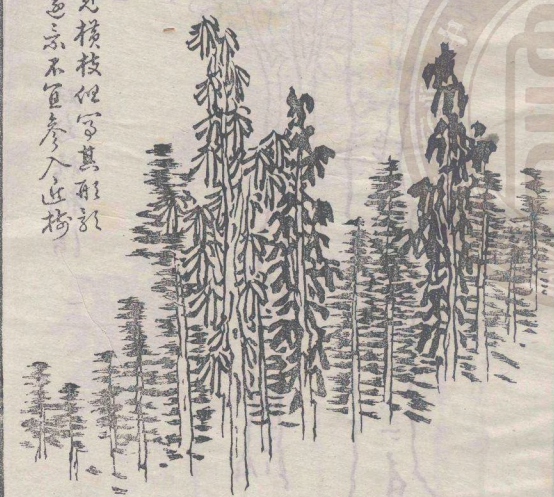 見橫枝但写其形影
遠景不宜參入近樹